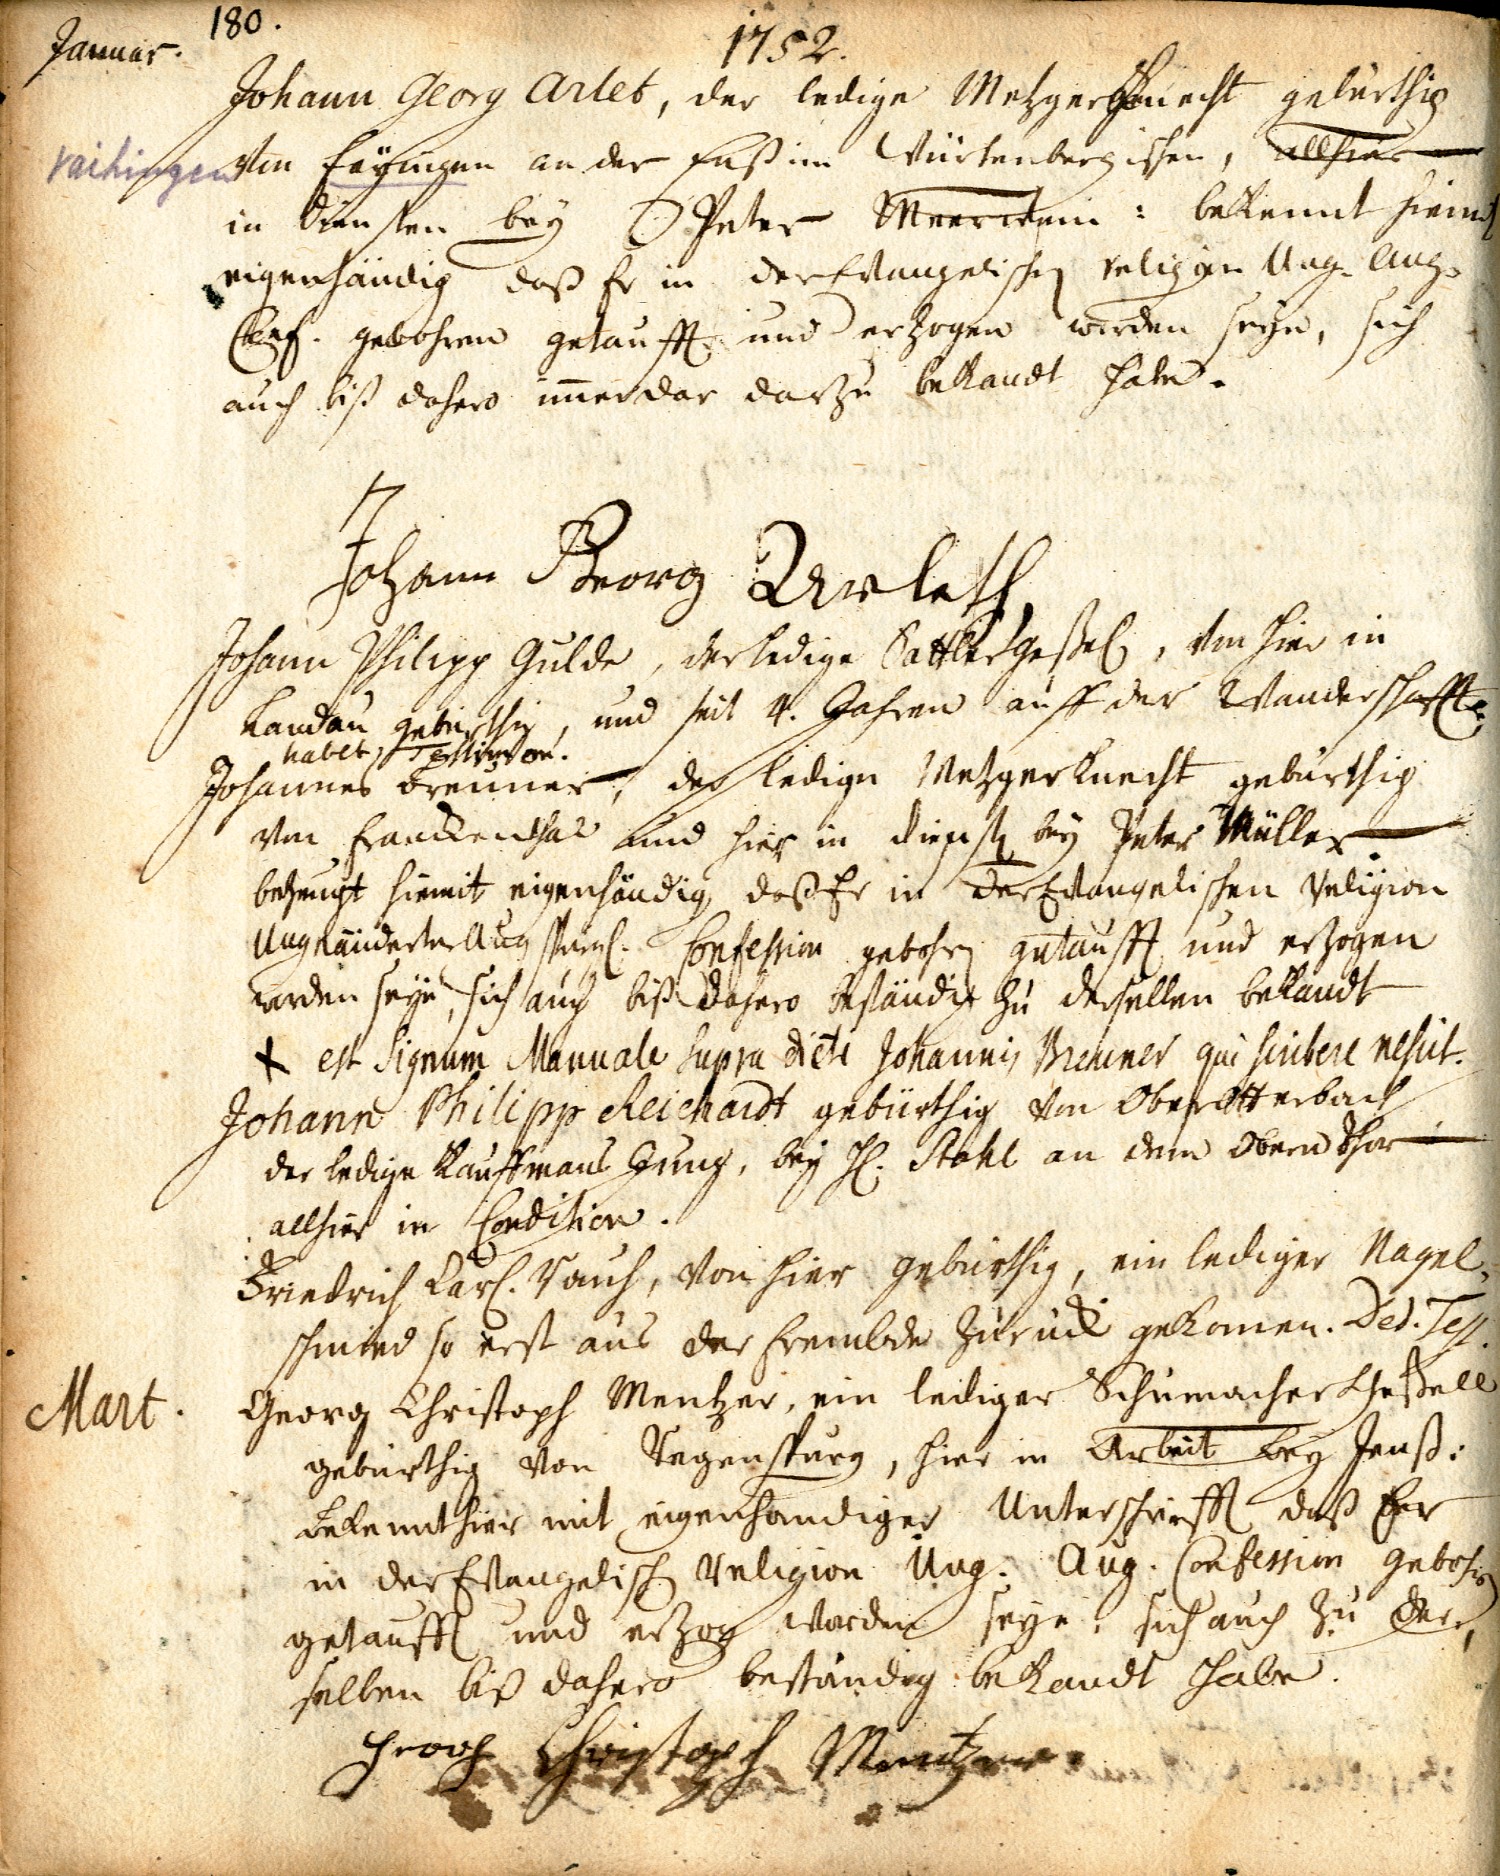 180.
Januar.
1752.
Johann Georg Arlet, der ledige Metzgerknecht gebürthig
Vaihingen
von Fäyingen an der Entz im Würtenbergischen, allhier
in Diensten bey Peter Meerwein: bekennt hiemit
eigenhändig daß Er in der Evangelischen religion Ung. Aug.
Conf. gebohren getaufft und erzogen worden seye, sich
auch biß dahero immerdar darzu bekandt habe.
Johann Georg Arleth,
Johann Philipp Gulde, der ledige Sattlergeßel, von hier in
Landau gebürthig, und seit 4. Jahren auff der Wanderschafft.
habet Testimon.
Johannes Brenner, der ledige Metzgerknecht gebürthig
von Franckenthal und hier in Dienst bey Peter Müller
bezeugt hiemit eigenhändig, daß Er in der Evangelischen Religion
Ungeänderter Augspurg. Confession gebohren getaufft und erzogen
worden seye, sich auch biß dahero beständig zu derselben bekandt
x est Signum Manuale supra dicti Johannis Brenner qui scribere nescit.
Johann Philipp Reichardt gebürthig von Oberotterbach
der ledige Kauffmans Jung, bey H. Stahl an dem Obern Thor
allhier in Condition.
Friedrich Carl Rauch, von hier gebürthig, ein lediger Nagel-
schmied so erst aus der Frembde zurück gekomen. Ded. Test.
Mart.
Georg Christoph Mentzer, ein lediger Schumacher Geßell
gebürthig von Regenspurg, hier in Arbeit bey
bekennt hier mit eigenhändiger Unterschrifft daß Er
in der Evangelisch Religion Ung. Aug. Confession gebohren
getaufft und erzog worden seye: sich auch zu der-
selben biß dahero beständig bekandt habe.
Georg Christoph Mentzer